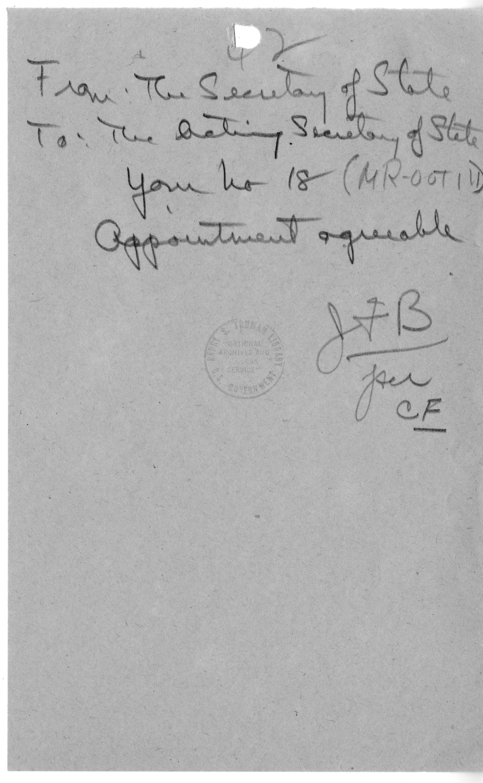 42
From: The Secretary of State
To: The Acting Secretary of State
Your No 18 (MR-OUT 111)
Appointment agreeable
JFB
per
CF
HARRY S. TRUMAN LIBRARY
NATIONAL
ARCHIVES AND
SERVICE
U.S. GOVERNMENT